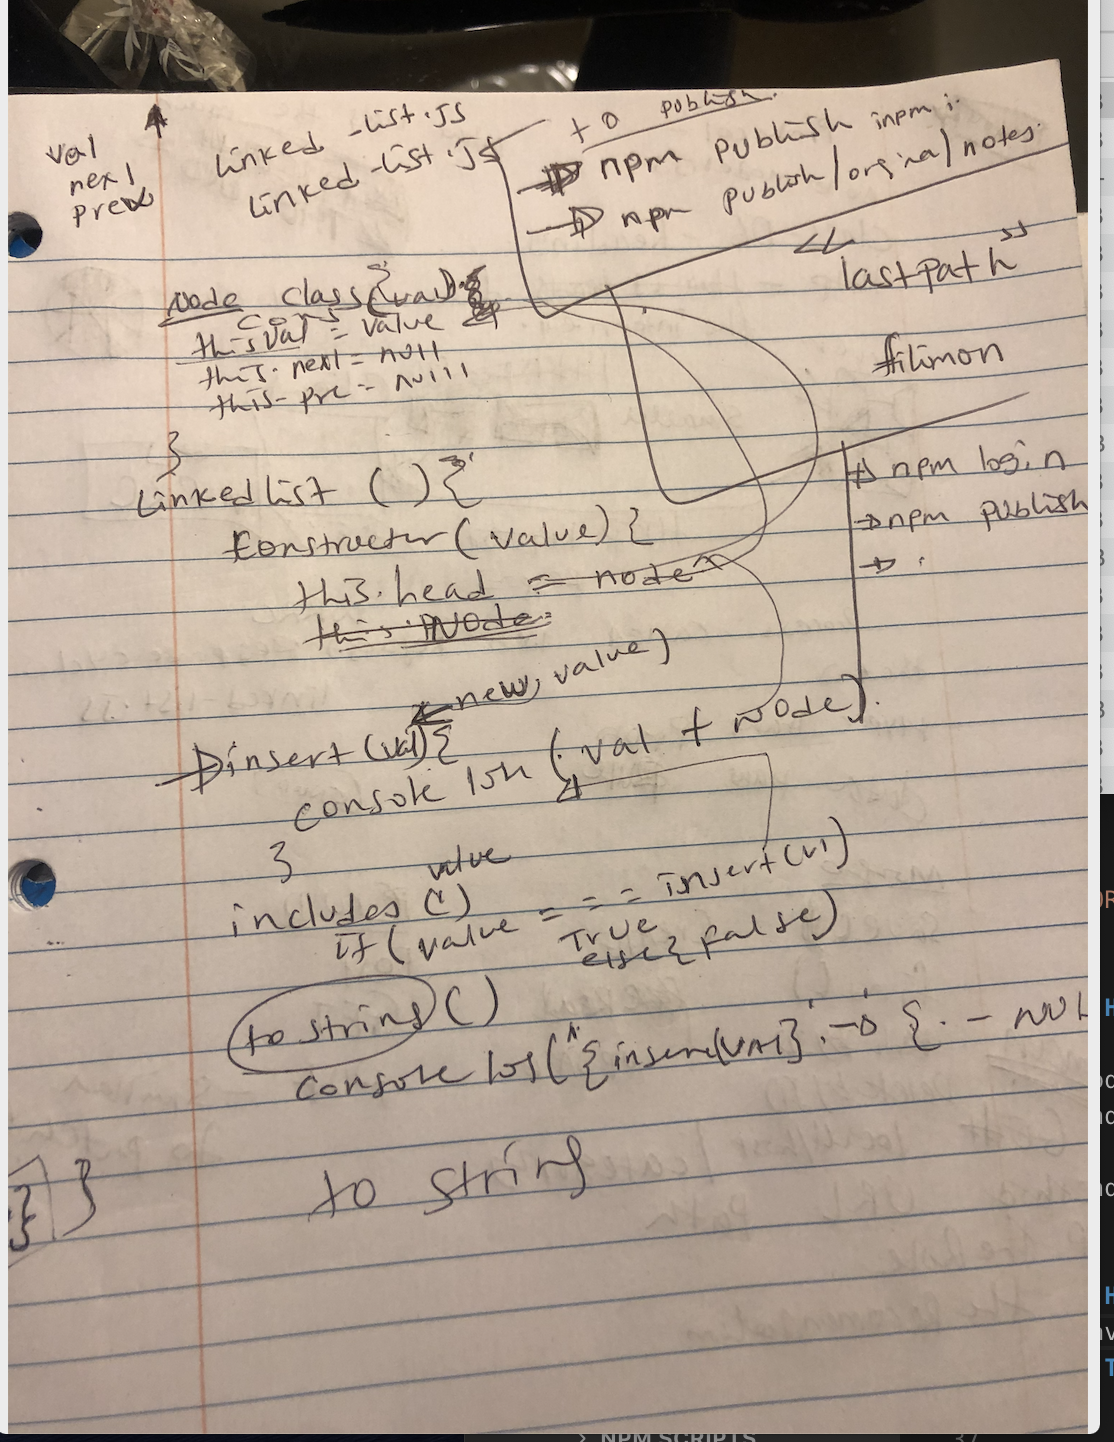 val
next
prev
Linked -list.JS
Linked -list.JS
to publish.
npm publish inpm i.
npm publish/orginal notes.
"lastpath"
filimon
npm login
npm publish
Node class {
cons (val)
this val = value
this. next = null
this- pre = null
}
Linkedlist () {
Constructor (value) {
this. head = node
this. Node
new, value)
insert (val) {
console log (val + node).
}
value
includes ()
if (value === insert (v1)
True
else { false)
to string ()
console log ("{insert(val}. → {. - NUL
}
to string